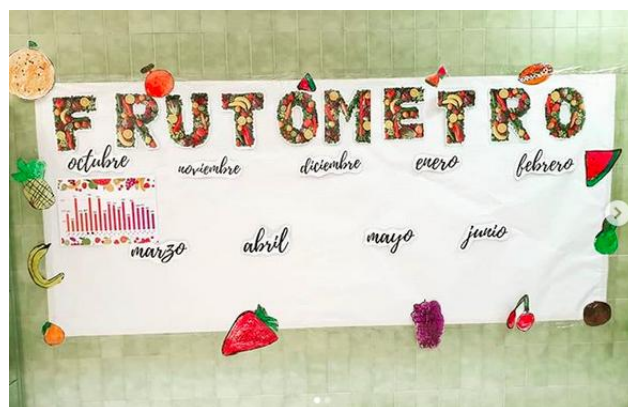 FRUTÓMETRO
octubre noviembre diciembre enero febrero
marzo abril mayo junio